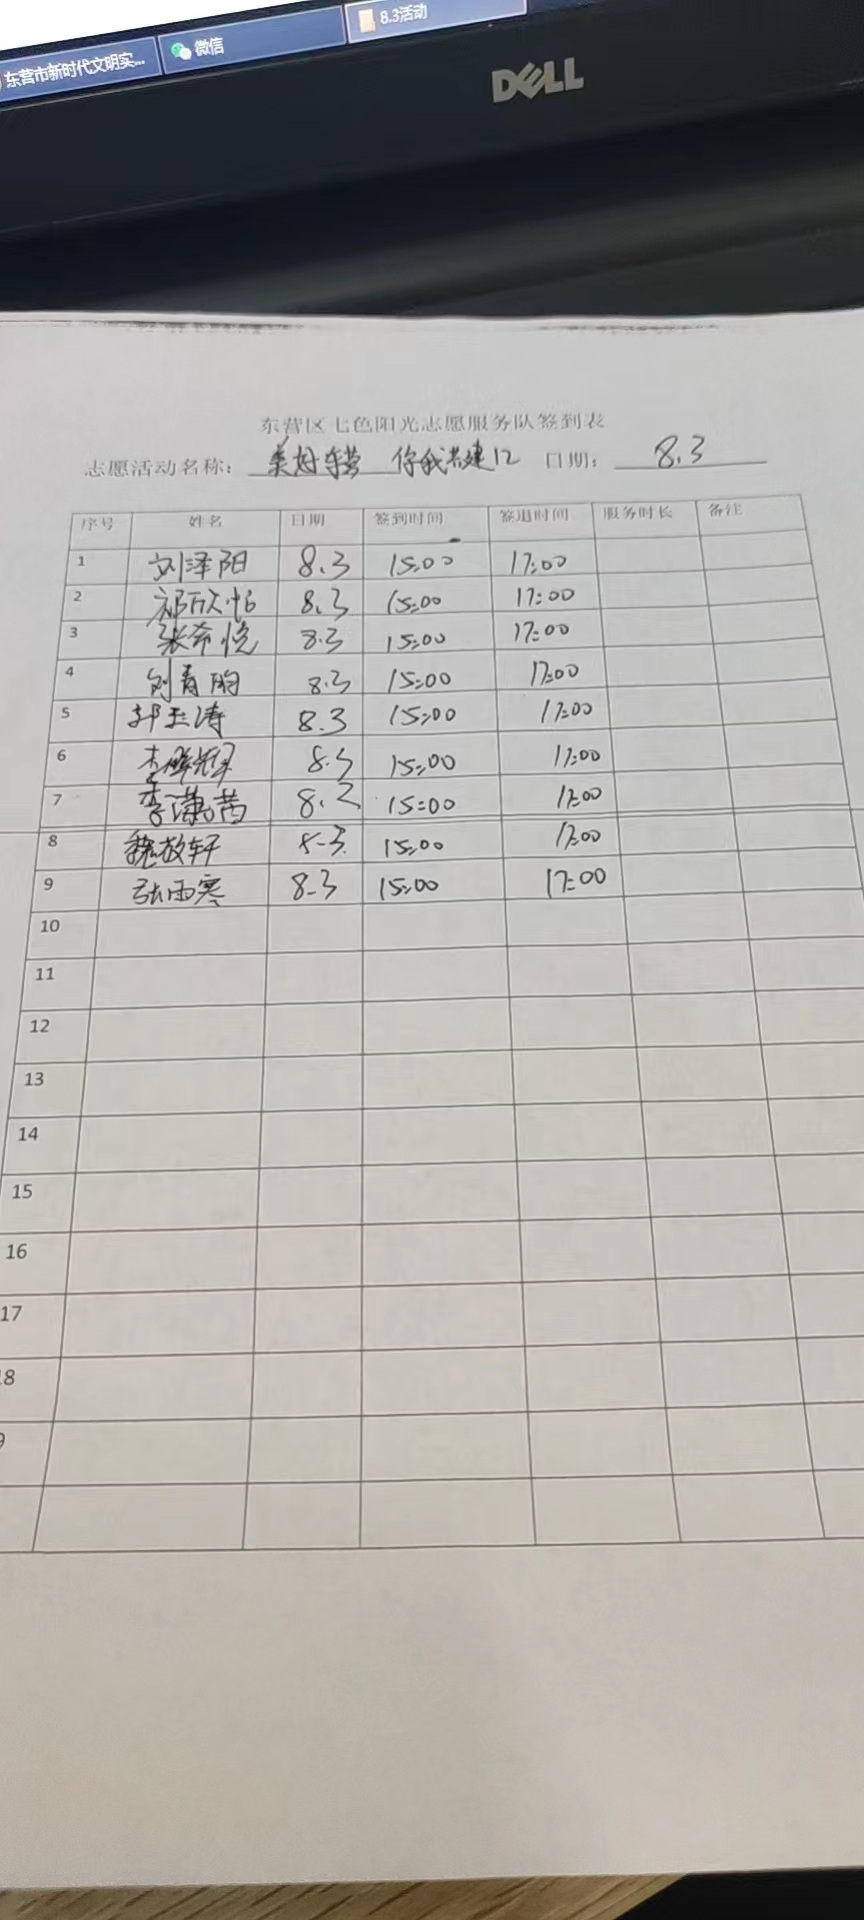 东营市新时代文明实...
微信
8.3活动
DELL
东营区七色阳光志愿服务队签到表
志愿活动名称: 美好东营 你我共建 12 日期: 8.3
序号 姓名 日期 签到时间 签退时间 服务时长 备注
1 刘泽阳 8.3 15:00 17:00
2 祁欣怡 8.3 15:00 17:00
3 张希悦 8.3 15:00 17:00
4 刘育彤 8.3 15:00 17:00
5 郭玉涛 8.3 15:00 17:00
6 李 8.3 15:00 17:00
7 李潇茜 8.3 15:00 17:00
8 魏敬轩 8-3 15:00 17:00
9 张雨寒 8-3 15:00 17:00
10
11
12
13
14
15
16
17
8
9